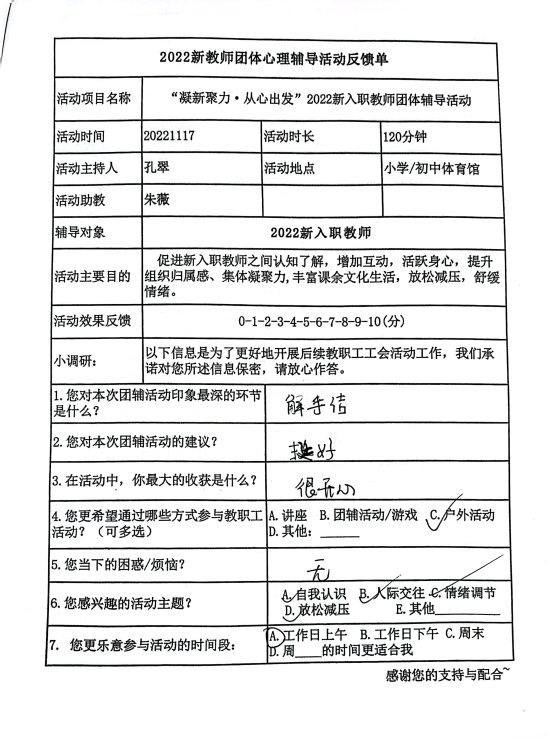 2022新教师团体心理辅导活动反馈单
活动项目名称 “凝新聚力·从心出发”2022新入职教师团体辅导活动
活动时间 20221117 活动时长 120分钟
活动主持人 孔翠 活动地点 小学/初中体育馆
活动助教 朱薇
辅导对象 2022新入职教师
活动主要目的 促进新入职教师之间认知了解，增加互动，活跃身心，提升
组织归属感、集体凝聚力,丰富课余文化生活，放松减压，舒缓
情绪。
活动效果反馈 0-1-2-3-4-5-6-7-8-9-10(分)
小调研： 以下信息是为了更好地开展后续教职工工会活动工作，我们承
诺对您所述信息保密，请放心作答。
1.您对本次团辅活动印象最深的环节
是什么？
解手结
2.您对本次团辅活动的建议？ 挺好
3.在活动中，你最大的收获是什么？ 很开心
4.您更希望通过哪些方式参与教职工
活动？（可多选）
A.讲座 B.团辅活动/游戏 C.户外活动
D.其他：______
5.您当下的困惑/烦恼？ 无
6.您感兴趣的活动主题？ A.自我认识 B.人际交往 C.情绪调节
D.放松减压 E.其他__________
7. 您更乐意参与活动的时间段： A.工作日上午 B.工作日下午 C.周末
D.周____的时间更适合我
感谢您的支持与配合~